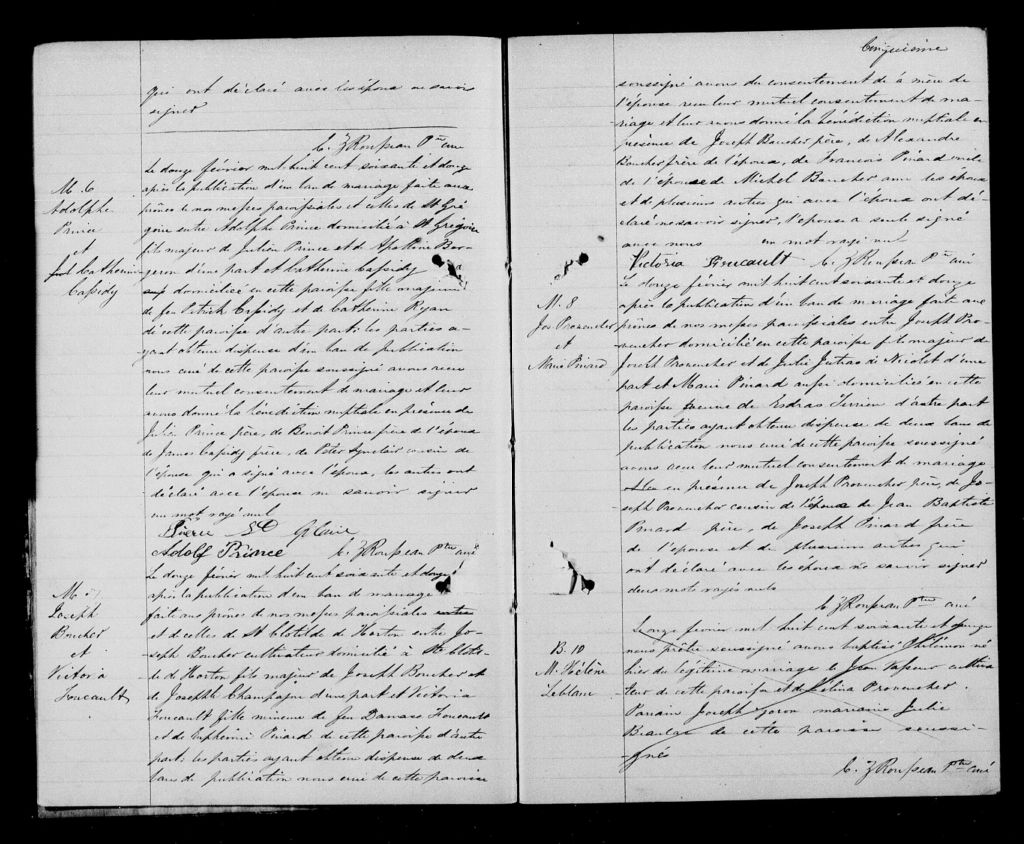 qui ont déclaré avec les époux ne savoir
signer
C. Z Rousseau Ptre curé
M. 6
Adolphe
Prince
et
Catherine
Cassidy
Le douze février mil huit cent soixante et douze
après la publication d'un ban de mariage faite aux
prônes de nos messes paroissiales et celles de St Gré
goire entre Adolphe Prince domicilié à St Grégoire
fils majeur de Julien Prince et de Ber-
geron d'une part et Catherine Cassidy
domiciliée en cette paroisse fille majeure
de feu Patrick Cassidy et de Catherine Ryan
de cette paroisse d'autre part: les parties a-
yant obtenu dispense d'un ban de publication
nous curé de cette paroisse soussigné avons reçu
leur mutuel consentement de mariage et leur
avons donné la bénédiction nuptiale en présence de
Julien Prince père, de Benoit Prince frère de l'époux
de James Cassidy frère, de Peter cousin de
l'épouse qui a signé avec l'époux, les autres ont
déclaré avec l'épouse ne savoir signer
un mot rayé nul
Pierre St Claire
Adolf Prince C. Z Rousseau Ptre curé
M. 7
Joseph
Boucher
et
Victoria
Foucault
Le douze février mil huit cent soixante et douze
après la publication d'un ban de mariage
fait aux prônes de nos messes paroissiales entre
et de celles de St Clotilde de Horton entre Jo-
seph Boucher cultivateur domicilié à Ste Clotil-
de de Horton fils majeur de Joseph Boucher et
de Josephte Champagne d'une part et Victoria
Foucault fille mineure de feu Damase Foucault
et de Euphémie Pinard de cette paroisse d'autre
part: les parties ayant obtenu dispense de deux
bans de publication nous curé de cette paroisse
Cinquième
soussigné avons du consentement de la mère de
l'épouse reçu leur mutuel consentement de ma-
riage et leur avons donné la bénédiction nuptiale en
présence de Joseph Boucher père, de Alexandre
Boucher frère de l'époux, de François Pinard oncle
de l'épouse de Michel Boucher avec les époux
et de plusieurs autres qui avec l'époux ont dé-
claré ne savoir signer, l'épouse a seule signé
avec nous un mot rayé nul
Victoria Foucault C. Z Rousseau Ptre curé
M. 8
Jos Provencher
et
Marie Pinard
Le douze février mil huit cent soixante et douze
après la publication d'un ban de mariage fait aux
prônes de nos messes paroissiales entre Joseph Pro-
vencher domicilié en cette paroisse fils majeur de
Joseph Provencher et de Julie Jutras de Nicolet d'une
part et Marie Pinard aussi domiciliée en cette
paroisse veuve de Esdras Terrien d'autre part
les parties ayant obtenu dispense de deux bans de
publication nous curé de cette paroisse soussigné
avons reçu leur mutuel consentement de mariage
en présence de Joseph Provencher père, de Jo-
seph Provencher cousin de l'époux de Jean Baptiste
Pinard père, de Joseph Pinard frère
de l'épouse et de plusieurs autres qui
ont déclaré avec les époux ne savoir signer
deux mots rayés nuls
C. Z Rousseau Ptre curé
B. 10
M. Hélène
Leblanc
Le onze février mil huit cent soixante et douze
nous prêtre soussigné avons baptisé Philémon né
hier du légitime mariage de Jean cultiva
teur de cette paroisse et de Célina Provencher.
Parrain Joseph marraine Julie
Beaulac de cette paroisse soussi-
gnés
C. Z Rousseau Ptre curé